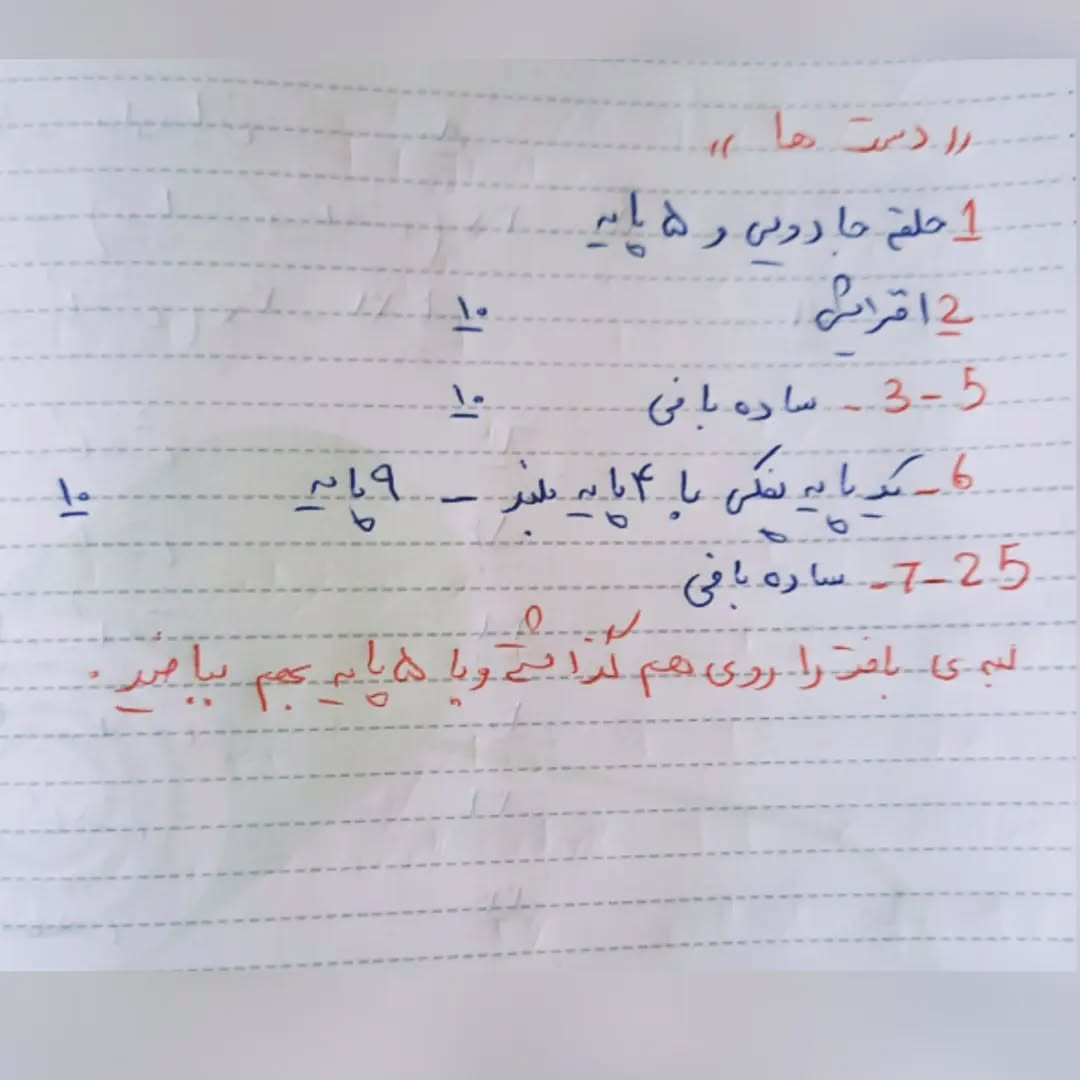 «دست ها»
1 حلقه جادویی و ۵ پایه
2 افزایش ۱۰
3-5- ساده بافی ۱۰
6- یک پایه پفکی با ۴ پایه بلند - ۹ پایه ۱۰
7-25- ساده بافی
لبه ی بافت را روی هم گذاشته و با ۵ پایه بهم ببافید.